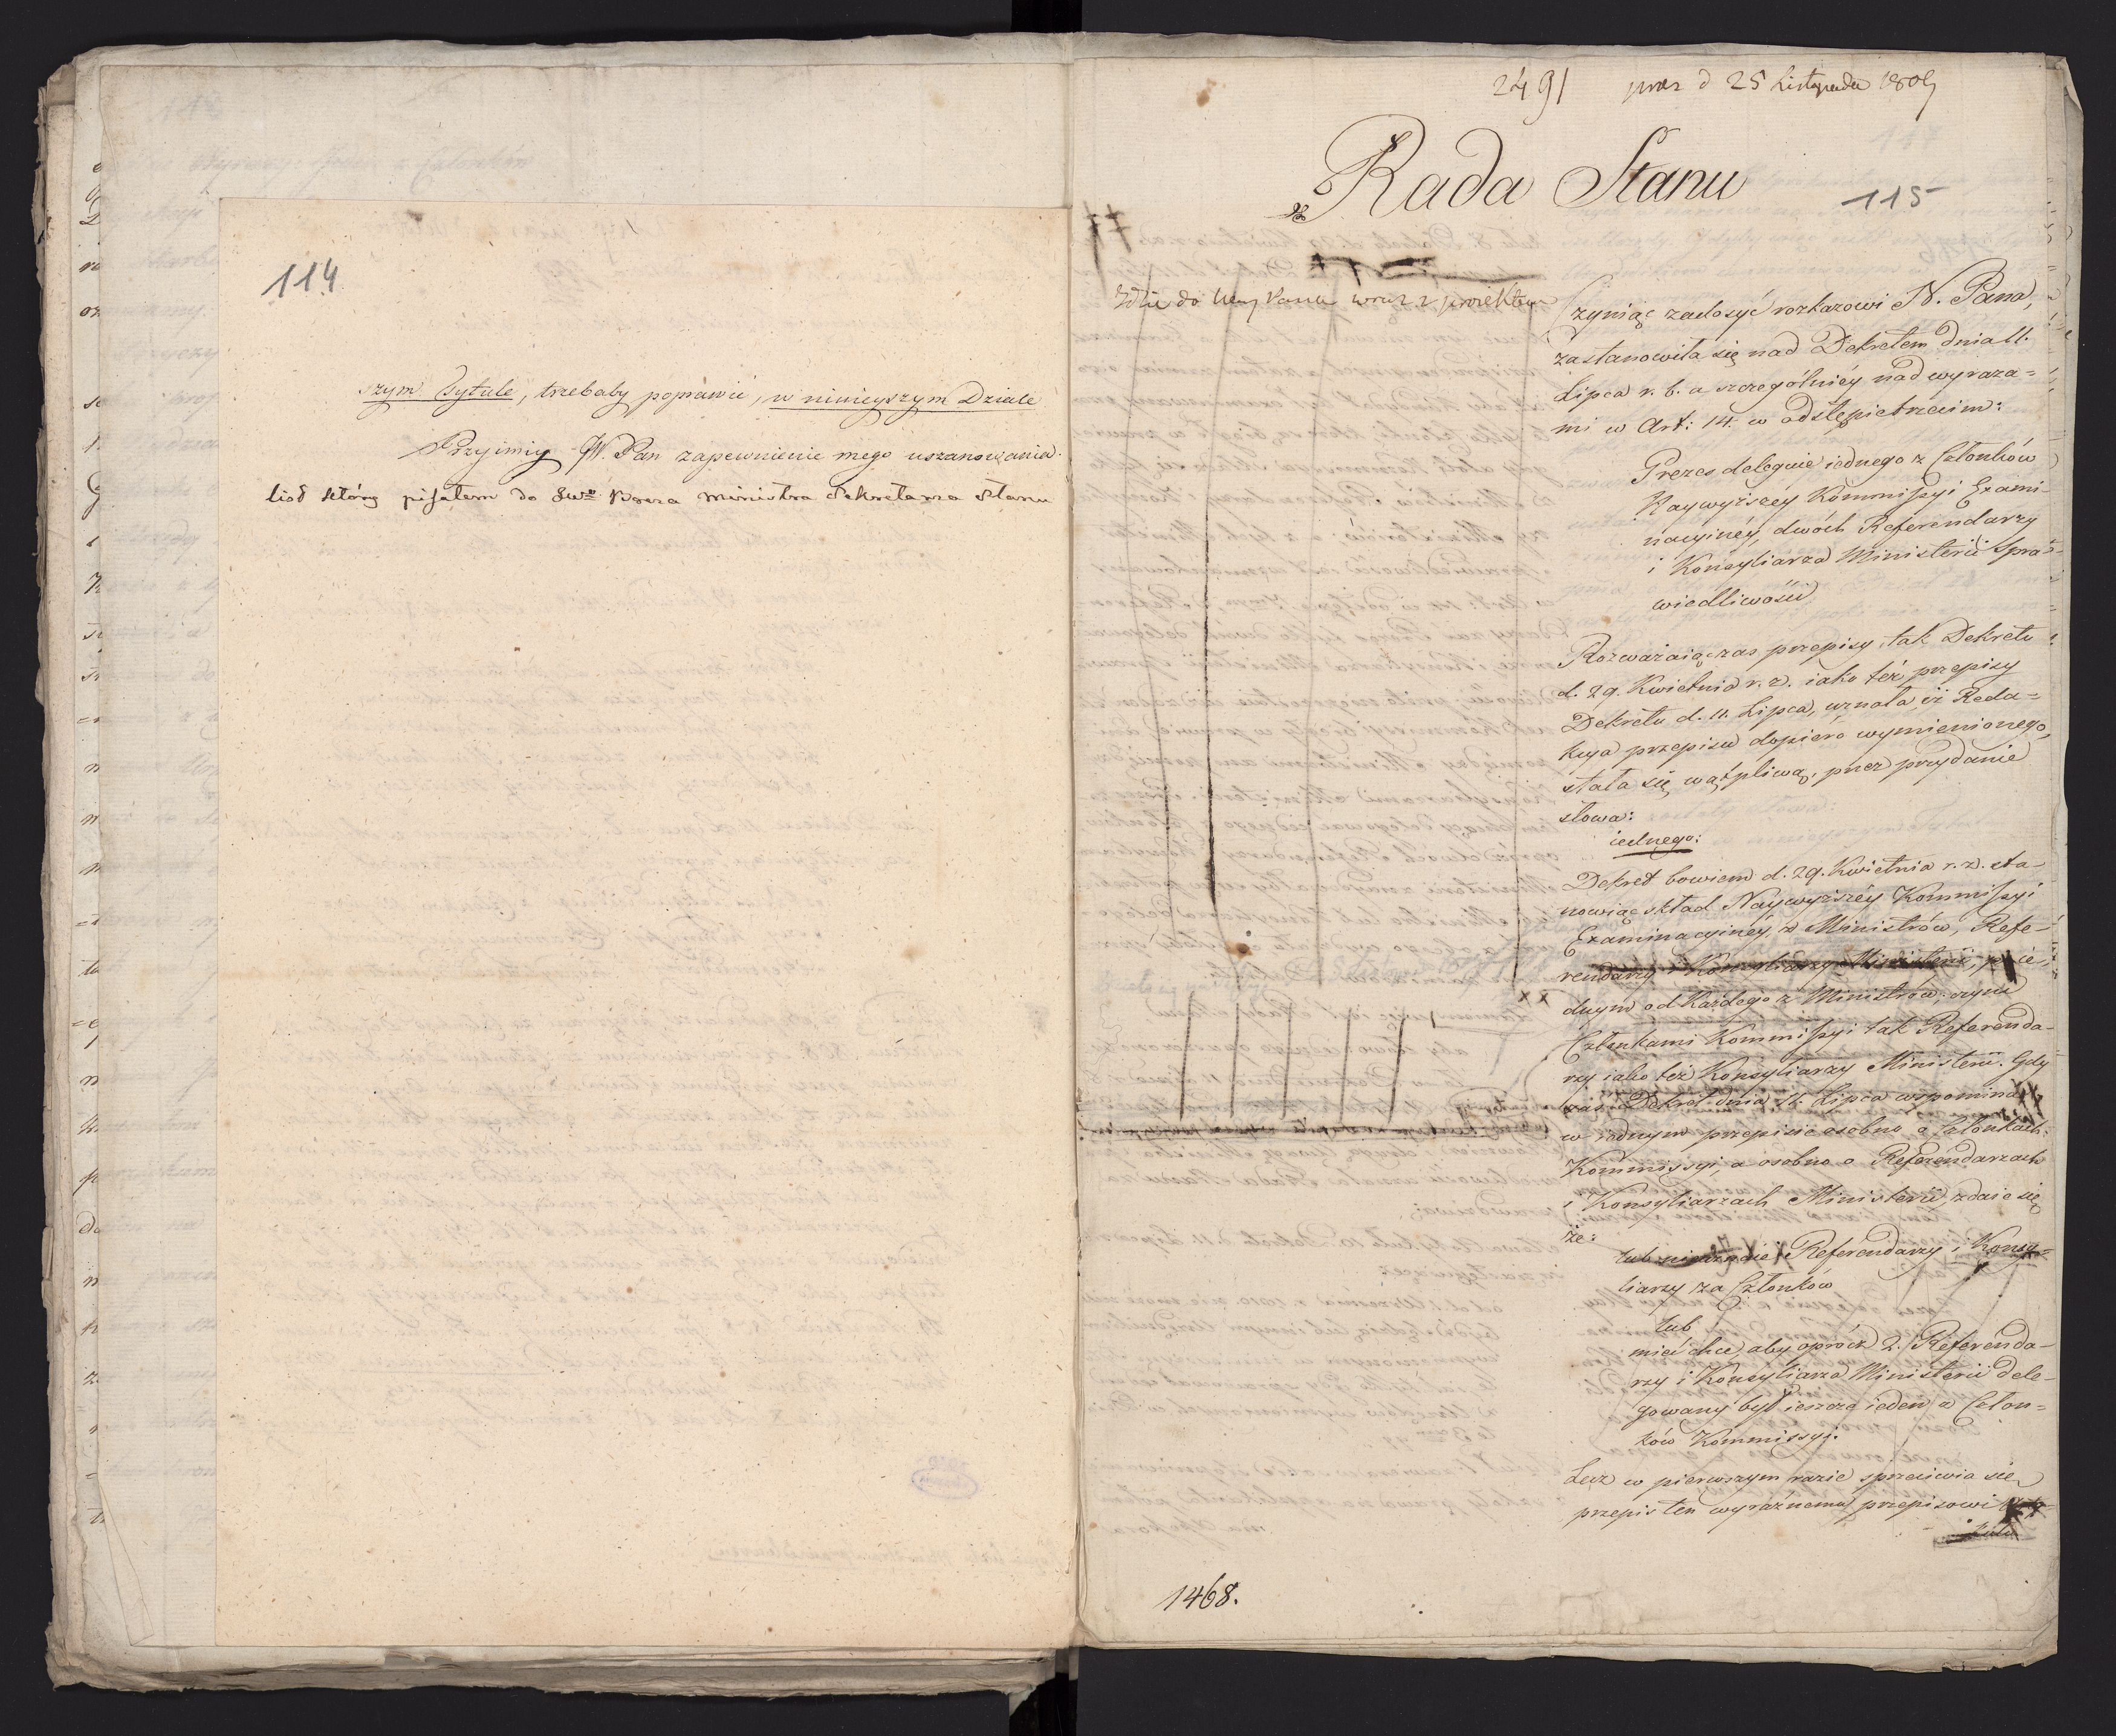 114
szym Tytule, trzebaby poprawić, w ninieyszym Dziale
Przyimiy JW. Pan zapewnienie mego uszanowania.
list który pisałem do Ministra Sekretarza Stanu
2491 prez d 25 Listopada 1809
Rada Stanu
115
Idzie do wraz z proiektem
Czyniąc zadosyć rozkazowi N. Pana,
zastanowiła się nad Dekretem dnia 11.
Lipca r. b. a szczególniéy nad wyraza=
mi w Art: 14. w odstępie trzecim:
Prezes deleguie iednego z Członków
Naywyższey Kommissyi Exami-
nacyinéy, dwóch Referendarzy
i Konsyliarza Ministerii Spra-
wiedliwości
Rozważaiąc zas przepisy, tak Dekretu
d. 29. Kwietnia r. z. iako też przepisy
Dekretu d. 11. Lipca, uznała, iż Reda=
kcya przepisu dopiero wymienionego,
stała się wątpliwą, przez przydanie
słowa:
iednego:
Dekret bowiem d. 29. Kwietnia r. z. sta-
nowiąc skład Naywyższéy Kommissyi
Examinacyinéy, z Ministrów, Refe-
rendarzy i Konsyliarzy Ministerii, po ie-
dnym od Każdego z Ministrów, czyni
Członkami Kommissyi tak Referenda-
rzy iako też Konsyliarzy Ministerii. Gdy
zaś Dekret dnia 11. Lipca wspomina
w iednym przepisie osobno o Członkach
Kommissyi, a osobno o Referendarzach
i Konsyliarzach Ministerii, zdaie się
że:
lub nieuznaie Referendarzy i Konsy=
liarzy za Członków
lub
mieć chce, aby oprócz 2. Referenda-
rzy i Konsyliarza Ministerii dele-
gowany był ieszcze ieden z Człon=
ków Kommissyi.
Lecz w pierwszym razie sprzeciwia się
przepis ten wyraźnemu przepisowi
1468.